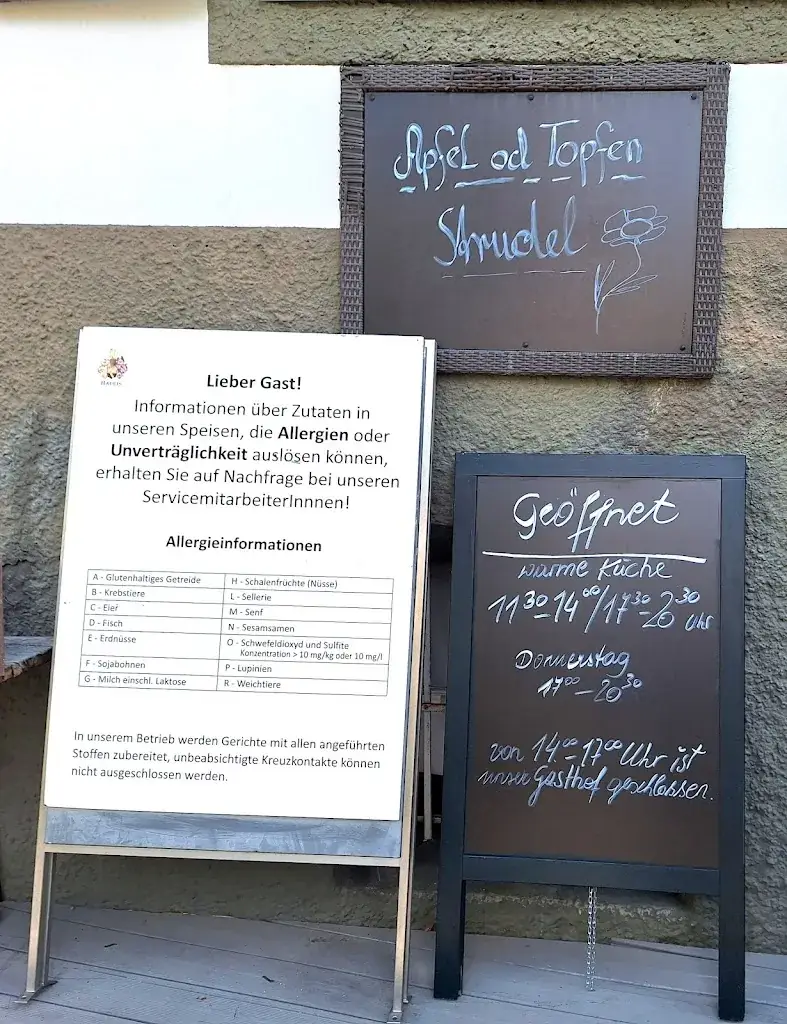 Apfel od Topfen
Strudel
Lieber Gast!
Informationen über Zutaten in
unseren Speisen, die Allergien oder
Unverträglichkeit auslösen können,
erhalten Sie auf Nachfrage bei unseren
ServicemitarbeiterInnnen!
Allergieinformationen
A - Glutenhaltiges Getreide
B - Krebstiere
C - Eier
D - Fisch
E - Erdnüsse
F - Sojabohnen
G - Milch einschl. Laktose
H - Schalenfrüchte (Nüsse)
L - Sellerie
M - Senf
N - Sesamsamen
O - Schwefeldioxyd und Sulfite
Konzentration > 10 mg/kg oder 10 mg/l
P - Lupinien
R - Weichtiere
In unserem Betrieb werden Gerichte mit allen angeführten
Stoffen zubereitet, unbeabsichtigte Kreuzkontakte können
nicht ausgeschlossen werden.
Geöffnet
warme Küche
11³⁰-14⁰⁰/17³⁰-20³⁰ Uhr
Donnerstag
17⁰⁰-20³⁰
von 14⁰⁰-17⁰⁰ Uhr ist
unser Gasthof geschlossen.